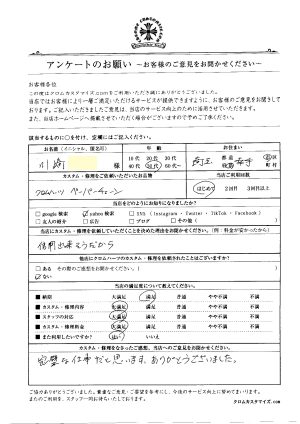 アンケートのお願い ~お客様のご意見をお聞かせください~
お客様各位
この度はクロムカスタマイズ.comをご利用いただき誠にありがとうございました。
当店ではお客様により一層ご満足いただけるサービスが提供できますように、お客様のご意見をお聞きして
おります。ご記入いただきましたご意見は、当店のサービス向上のために活用させていただきます。
また、当店ホームページへ掲載させていただく場合がございますので予めご了承ください。
該当するものに○を付け、空欄にはご記入ください。
お名前 (イニシャル、匿名可) 年齢 お住まい
川崎 様 10代 20代 30代 40代 50代 60代~ 埼玉
カスタム・修理をご依頼いただいたお品物 当店ご利用回数
クロムハーツ ペーパーチェーン はじめて 2回目 3回目以上
当店をどのようにお知りになりましたか?
google検索 yahoo検索 SNS (Instagram・Twitter・TikTok・Facebook)
友人の紹介 広告 ブログ その他 ( )
カスタム・修理を依頼していただくことを決めた理由をお聞かせください(例:料金が安かったから)
信用出来そうだから
他店にクロムハーツのカスタム・修理を依頼されたことはございますか?
ある その際のご感想をお聞かせください( )
ない
当店の満足度について教えてください。
■ 納期 大満足 満足 普通 やや不満 不満
■ カスタム・修理内容 大満足 満足 普通 やや不満 不満
■ スタッフの対応 大満足 満足 普通 やや不満 不満
■ カスタム・修理料金 大満足 満足 普通 やや不満 不満
■ また利用したいですか? はい いいえ
カスタム・修理をなさったご感想、当店へのご意見をお聞かせください。
完璧な仕事だと思います。ありがとうございました。
ご協力ありがとうございました。貴重なご意見・ご要望を参考にし、今後のサービス向上に努めてまいります。
またのご利用を、スタッフ一同お待ちいたしております。
クロムカスタマイズ.com